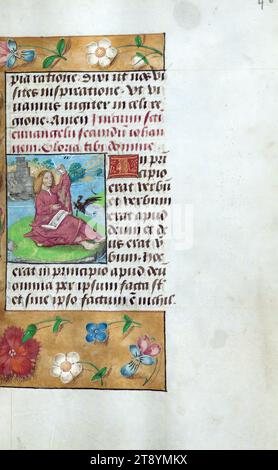 pia ratione. Sivi ut nos vi
sites inspiratione. Ut vi
uamus iugiter in celi re
gione. Amen Inicium sci
euangelii secundum iohan
nem. Gloria tibi domine
In pri
cipio
erat verbu
et verbum
erat apud
deum et de
us erat v
bum. Hoc
erat in principio apud deu
omnia per ipsum facta st
et sine ipso factum e nichil
alamy
Image ID: 2T8YMKX
www.alamy.com